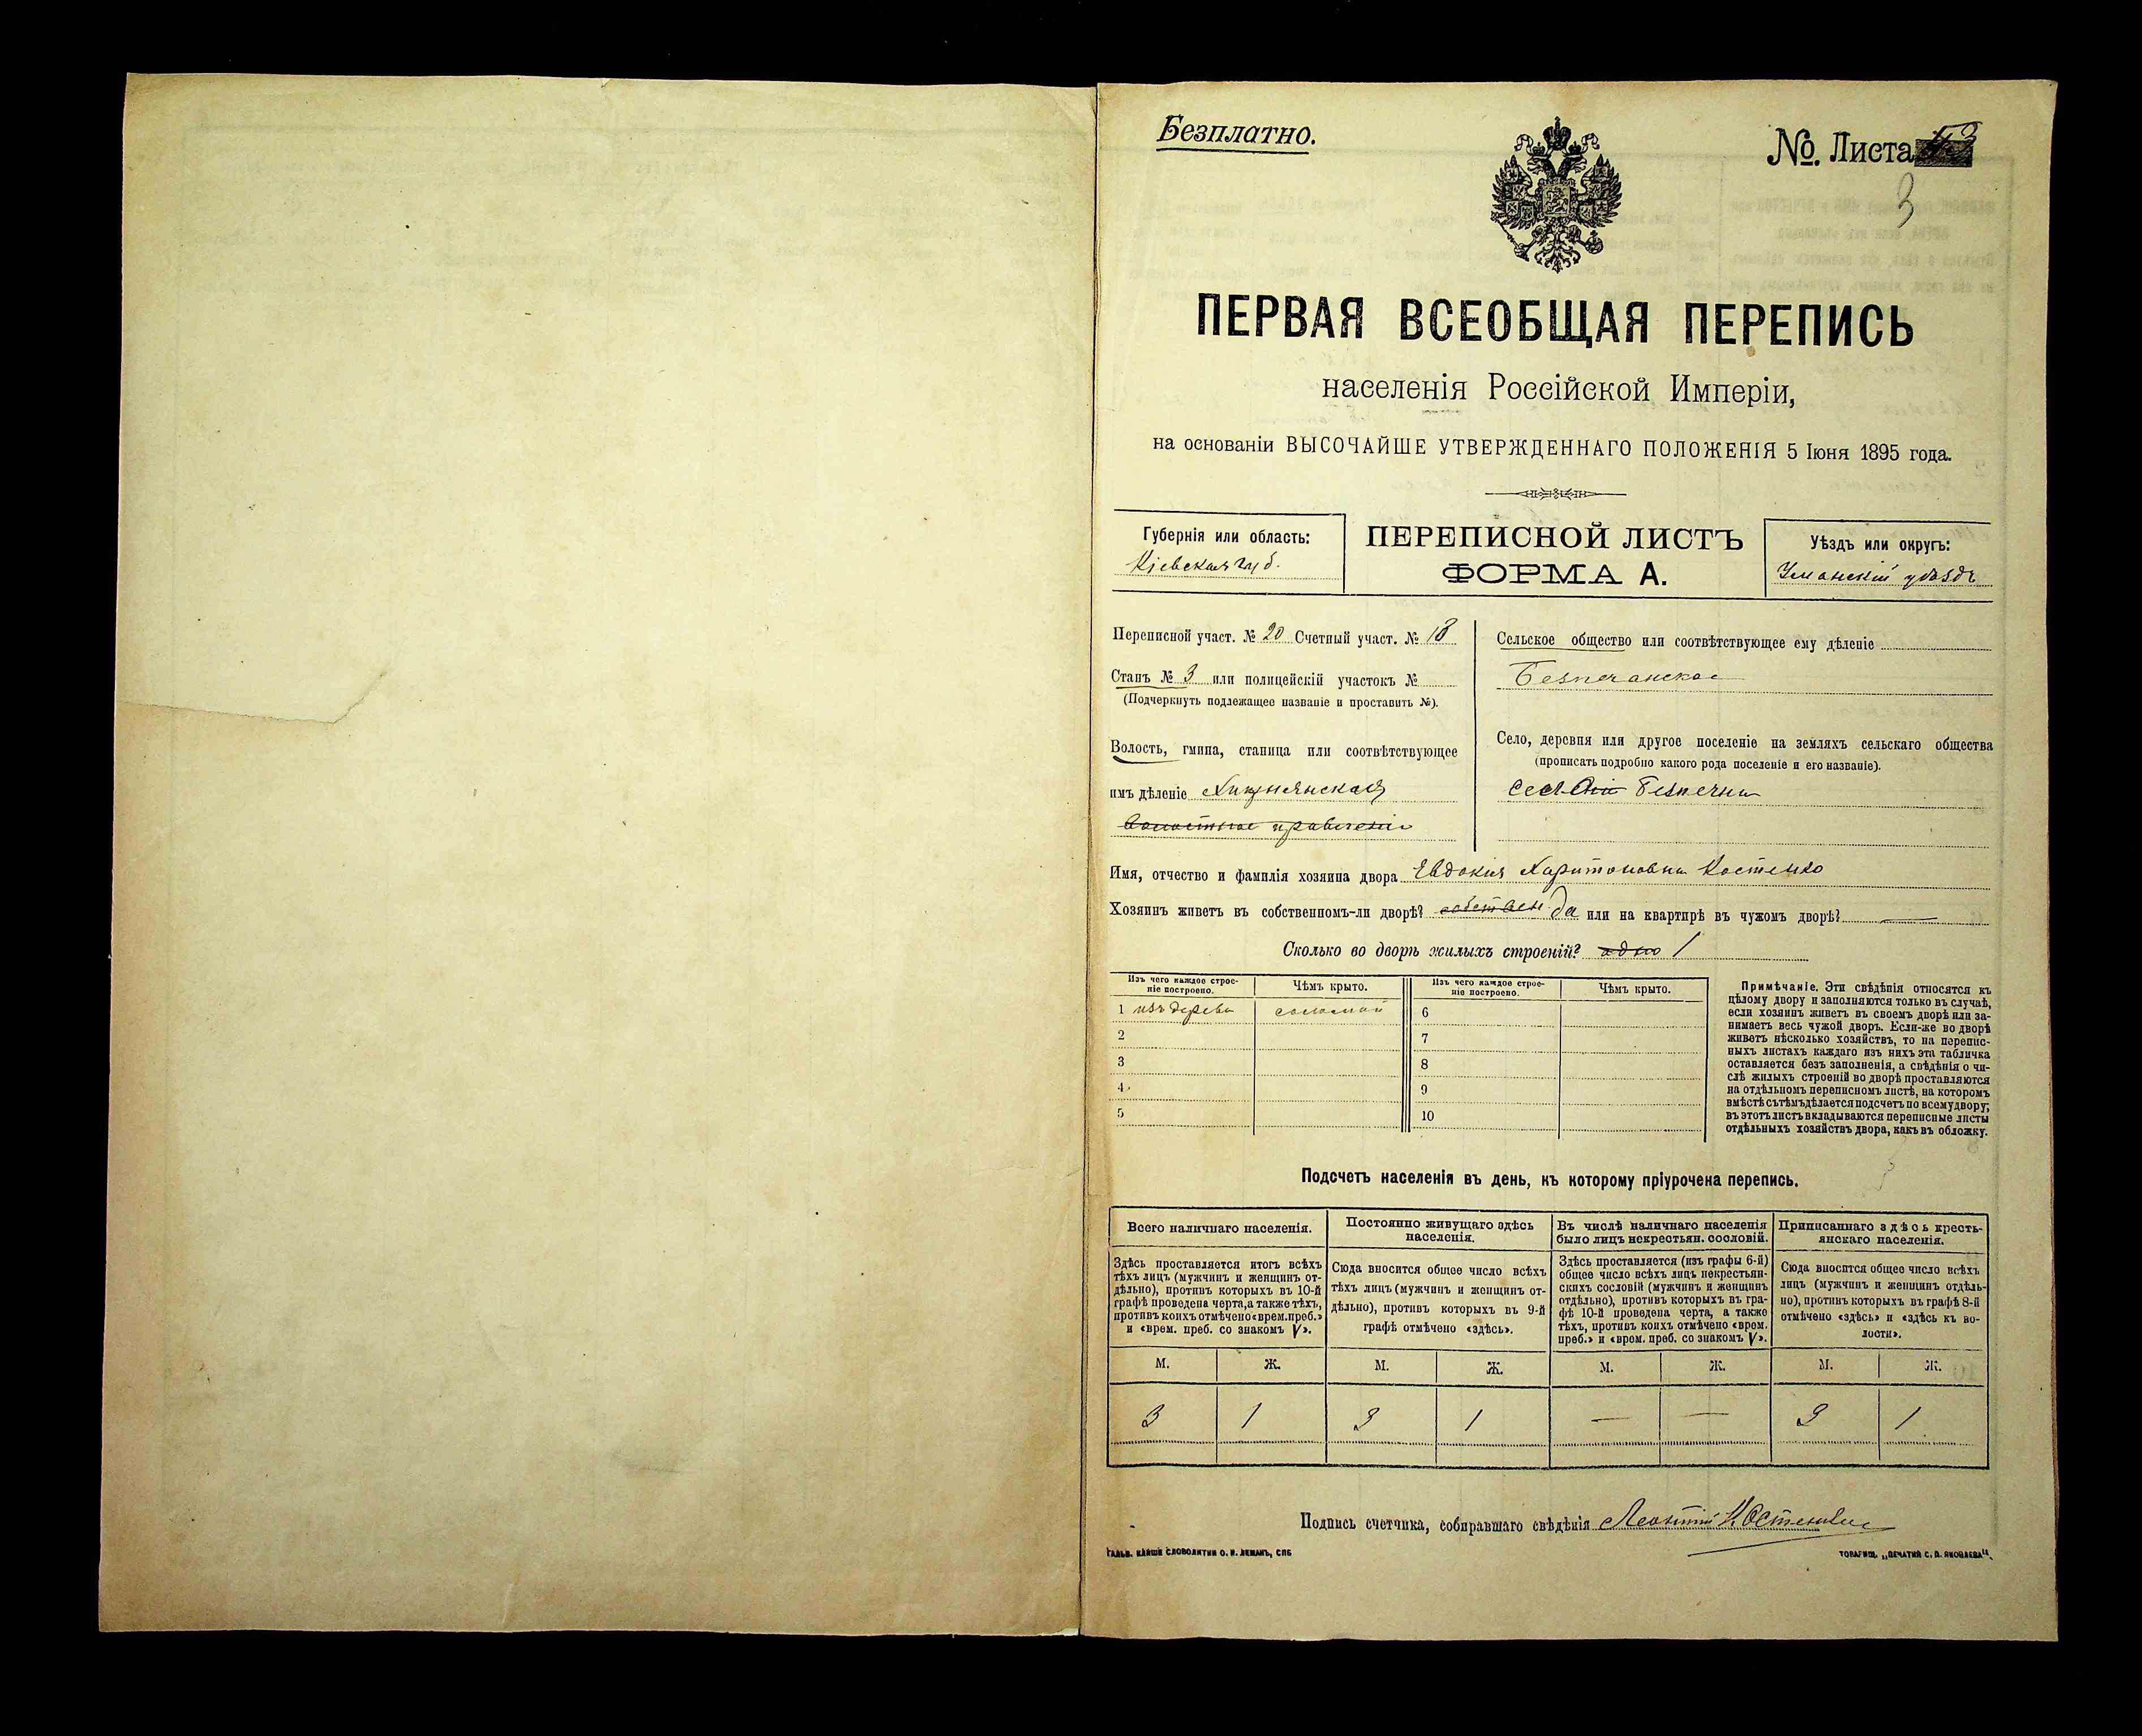 Безплатно.
№. Листа
3
ПЕРВАЯ ВСЕОБЩАЯ ПЕРЕПИСЬ
населенія Россійской Имперіи,
на основаніи ВЫСОЧАЙШЕ УТВЕРЖДЕННАГО ПОЛОЖЕНІЯ 5 Іюня 1895 года.
Губернія или область:
Кіевская губ.
ПЕРЕПИСНОЙ ЛИСТЪ
ФОРМА А.
Уѣздъ или округъ:
Уманскій уѣздъ
Переписной участ. № 20 Счетный участ. № 18
Станъ № 3 или полицейскій участокъ №
(Подчеркнуть подлежащее названіе и проставить №).
Волость, гмина, станица или соотвѣтствующее
имъ дѣленіе
волостное правленіе
Сельское общество или соотвѣтствующее ему дѣленіе
Безпечанское
Село, деревня или другое поселеніе на земляхъ сельскаго общества
(прописать подробно какого рода поселеніе и его названіе).
Безпечна
Имя, отчество и фамилія хозяина двора Евдокия Харитоновна Костенко
Хозяинъ живетъ въ собственномъ-ли дворѣ? да или на квартирѣ въ чужомъ дворѣ? —
Сколько во дворѣ жилыхъ строеній? одно 1
Изъ чего каждое строе-
ніе построено.
Чѣмъ крыто.
Изъ чего каждое строе-
ніе построено.
Чѣмъ крыто.
1 изъ дерева соломой 6
2 7
3 8
4 9
5 10
Примѣчаніе. Эти свѣдѣнія относятся къ
цѣлому двору и заполняются только въ случаѣ,
если хозяинъ живетъ въ своемъ дворѣ или за-
нимаетъ весь чужой дворъ. Если-же во дворѣ
живетъ нѣсколько хозяйствъ, то на перепис-
ныхъ листахъ каждаго изъ нихъ эта табличка
оставляется безъ заполненія, а свѣдѣнія о чи-
слѣ жилыхъ строеній во дворѣ проставляются
на отдѣльномъ переписномъ листѣ, на которомъ
вмѣстѣ съ тѣмъ дѣлается подсчетъ по всему двору;
въ этотъ листъ вкладываются переписные листы
отдѣльныхъ хозяйствъ двора, какъ въ обложку.
Подсчетъ населенія въ день, къ которому пріурочена перепись.
Всего наличнаго населенія.
Постоянно живущаго здѣсь
населенія.
Въ числѣ наличнаго населенія
было лицъ некрестьян. сословій.
Приписаннаго здѣсь кресть-
янскаго населенія.
Здѣсь проставляется итогъ всѣхъ
тѣхъ лицъ (мужчинъ и женщинъ от-
дѣльно), противъ которыхъ въ 10-й
графѣ проведена черта, а также тѣхъ,
противъ коихъ отмѣчено «врем. преб.»
и «врем. преб. со знакомъ V».
Сюда вносится общее число всѣхъ
тѣхъ лицъ (мужчинъ и женщинъ от-
дѣльно), противъ которыхъ въ 9-й
графѣ отмѣчено «здѣсь».
Здѣсь проставляется (изъ графы 6-й)
общее число всѣхъ лицъ некрестьян-
скихъ сословій (мужчинъ и женщинъ
отдѣльно), противъ которыхъ въ гра-
фѣ 10-й проведена черта, а также
тѣхъ, противъ коихъ отмѣчено «врем.
преб.» и «врем. преб. со знакомъ V».
Сюда вносится общее число всѣхъ
лицъ (мужчинъ и женщинъ отдѣль-
но), противъ которыхъ въ графѣ 8-й
отмѣчено «здѣсь» и «здѣсь къ во-
лости».
М. Ж. М. Ж. М. Ж. М. Ж.
3 1 3 1 — — 3 1
Подпись счетчика, собиравшаго свѣдѣнія Леонтий
ГАЛЬВ. КЛИШЕ СЛОВОЛИТНИ О. И. ЛЕМАНЪ, СПБ
ТОВАРИЩ. „ПЕЧАТНЯ С. П. ЯКОВЛЕВА“.